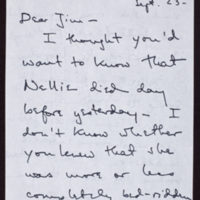 Sept. 23-
Dear Jim-
I thought you'd
want to know that
Nellie died day
before yesterday- I
don't know whether
you knew that she
was more or less
completely bed-ridden